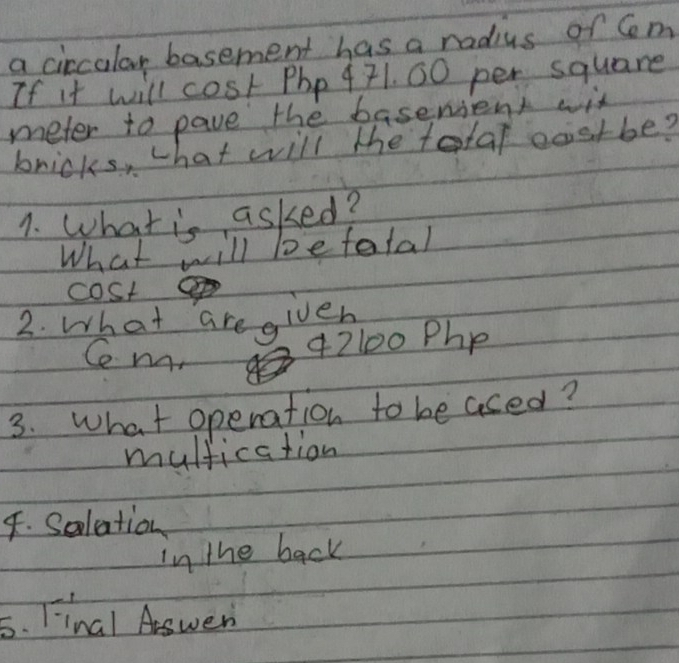 a circular basement has a radius of 6m
If it will cost Php 471.00 per square
meter to pave the basement wit
bricks, what will the total cost be?
1. What is asked?
What will be total
cost
2. What are given
6 m. 42100 Php
3. What operation to be used?
multication
4. Solution
in the back
5. Final Answer